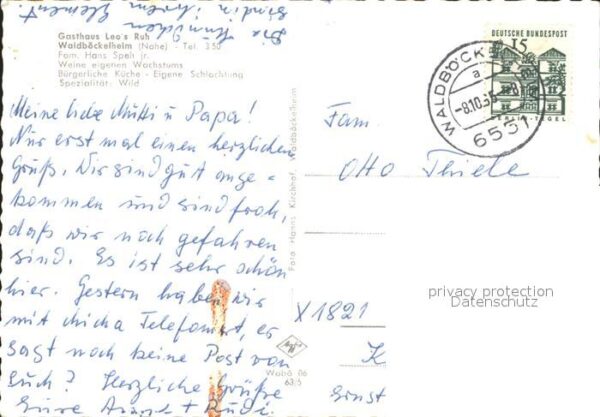 Die
sind in ihrem
Element
Gasthaus Leo's Ruh
Waldböckelheim (Nahe) - Tel. 350
Fam. Hans Speh jr.
Weine eigenen Wachstums
Bürgerliche Küche - Eigene Schlachtung
Spezialität: Wild
Meine liebe Mutti u Papa!
Nur erst mal einen herzlichen
Gruß. Wir sind gut ange-
kommen und sind froh,
daß wir noch gefahren
sind. Es ist sehr schön
hier. Gestern haben wir
mit Micha Telefoniert, er
sagt noch keine Post von
Euch? Herzliche Grüße
Eure Rudi
Foto Hanns Kirchhof, Waldböckelheim
Agfa
Wabö 06
63/5
DEUTSCHE BUNDESPOST
15
BERLIN-TEGEL
WALDBÖCKELHEIM
a
-8.10.65
6551
Fam.
Otto Thiele
privacy protection
Datenschutz
X1821
K
Ernst